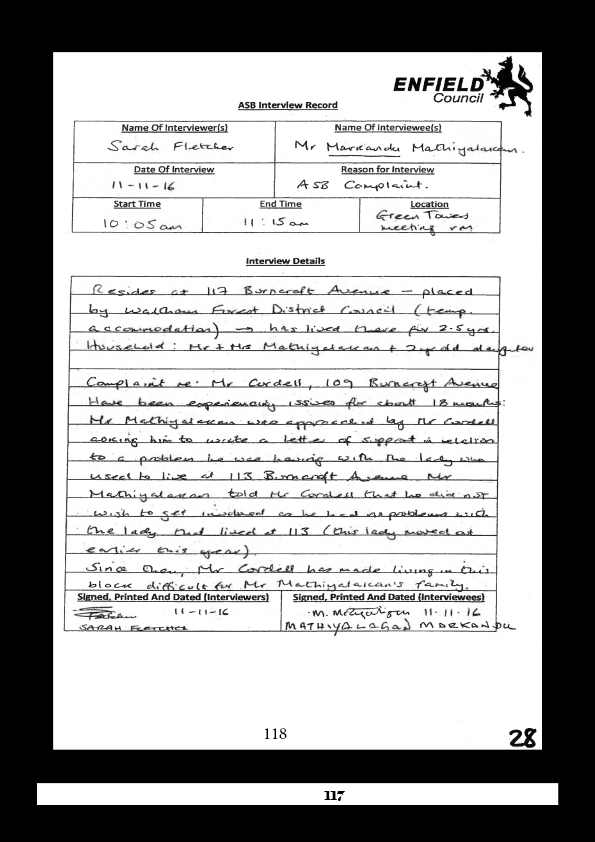 ENFIELD
Council
ASB Interview Record
Name Of Interviewer(s)
Name Of Interviewee(s)
Sarah Fletcher
Mr Markandu Mathiyalakan.
Date Of Interview
Reason for Interview
11-11-16
ASB Complaint.
Start Time
End Time
Location
10:05am
11:15am
Green Towers
meeting rm
Interview Details
Resides at 117 Burncroft Avenue – placed
by Waltham Forest District Council (temp.
accommodation) → has lived there for 2.5 yrs.
Household: Mr + Mrs Mathiyalakan + 2 yr old daughter
Complaint re: Mr Cordell, 109 Burncroft Avenue
Have been experiencing issues for about 18 months:
Mr Mathiyalakan was approached by Mr Cordell
asking him to write a letter of support in relation
to a problem he was having with the lady who
used to live at 113 Burncroft Avenue. Mr
Mathiyalakan told Mr Cordell that he did not
wish to get involved as he had no problems with
the lady that lived at 113 (this lady moved out
earlier this year).
Since then, Mr Cordell has made living in this
block difficult for Mr Mathiyalakan's family.
Signed, Printed And Dated (Interviewers)
Signed, Printed And Dated (Interviewees)
11-11-16
11.11.16
SARAH FLETCHER
MATHIYALAGAN MARKANDU
118
28
117